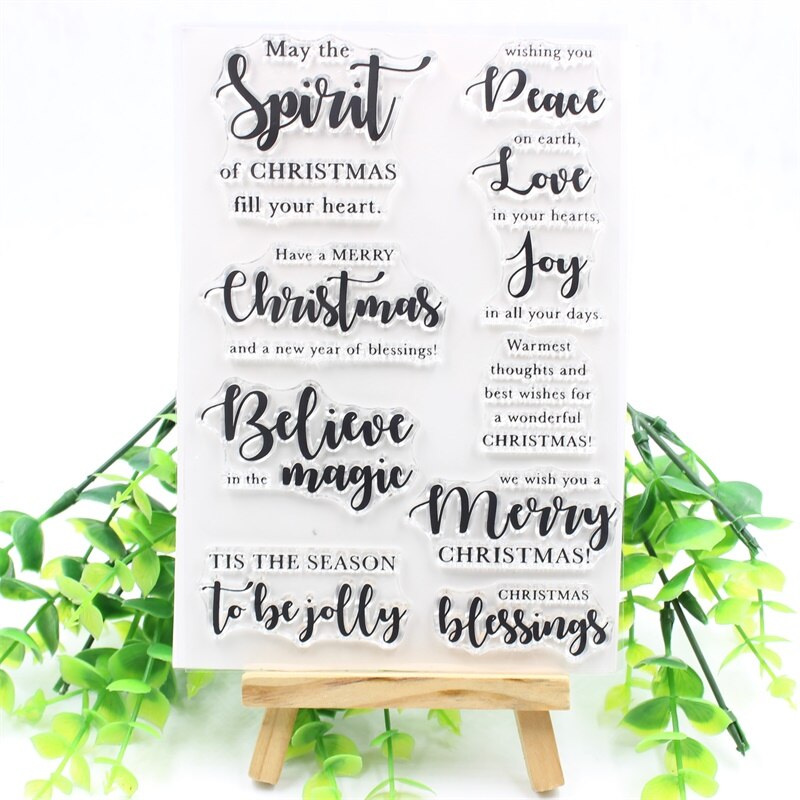 May the
Spirit
of CHRISTMAS
fill your heart.
Have a MERRY
Christmas
and a new year of blessings!
Believe
in the magic
TIS THE SEASON
to be jolly
wishing you
Peace
on earth,
Love
in your hearts,
Joy
in all your days.
Warmest
thoughts and
best wishes for
a wonderful
CHRISTMAS!
we wish you a
Merry
CHRISTMAS!
CHRISTMAS
blessings